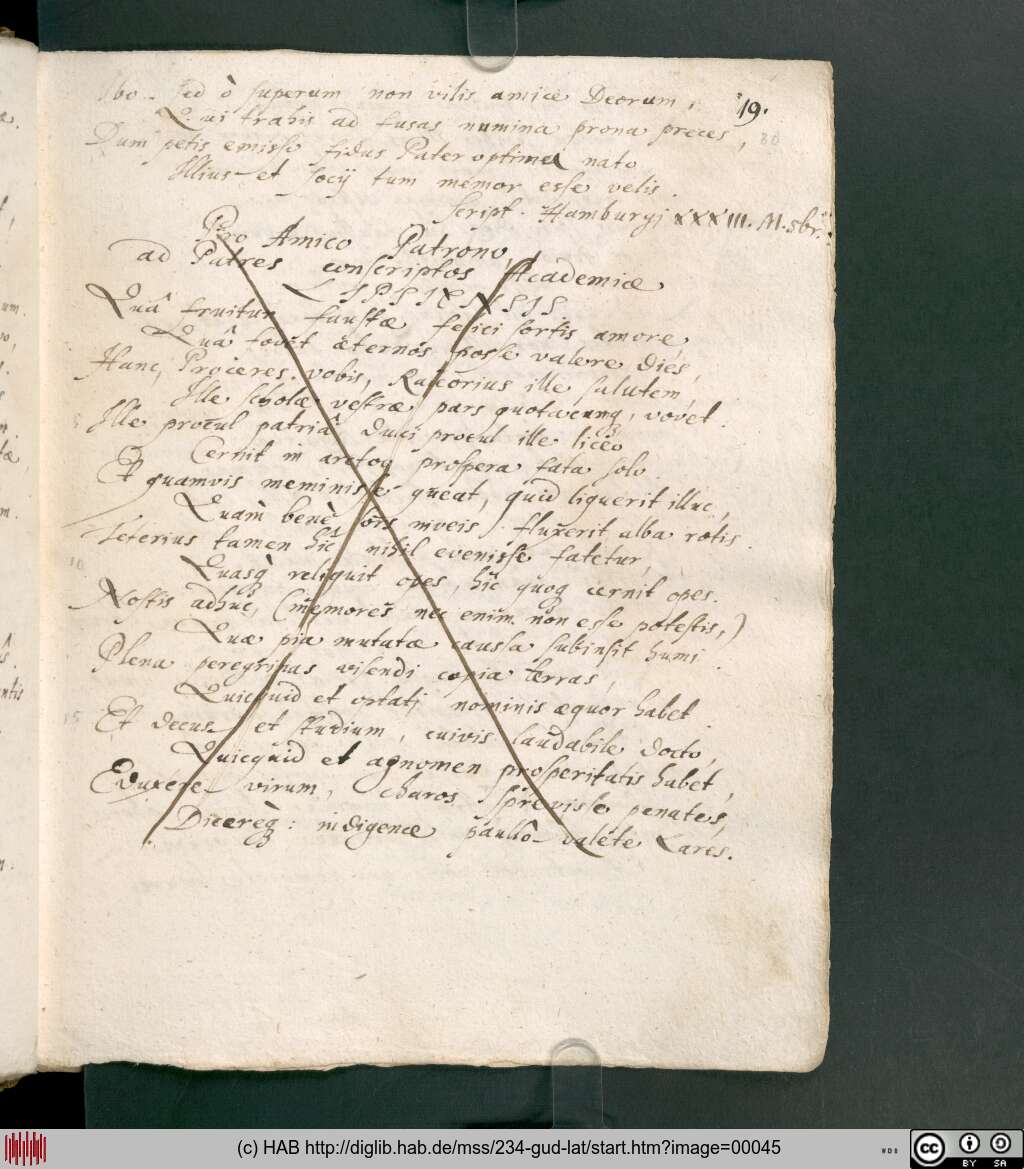 Ibo. Sed ò superum non vilis amice Deorum,
19.
Qui trahis ad fusas numina prona preces,
80
Dum petis emisso fidus Pater optime nato
Illius et socij tum memor esse velis.
Script. Hamburgi XXXIII. M. 8br.
Pro Amico Patrono,
ad Patres conscriptos Academiæ
LIPSIENSIS.
Quâ fruitur faustæ felici sortis amore,
Quâ fovit æternos posse valere dies,
Hanc, Proceres, vobis, ille salutem,
Ille scholæ vestræ pars quotacunq, vovet.
5
Ille procul patriâ duci procul ille liceo
Cernit in arctoo prospera fata solo.
Et quamvis meminisse queat, quid liquerit illuc,
Quàm benè niveis fluxerit alba rotis.
Seterius tamen hîc nihil evenisse fatetur,
10
Quasq reliquit opes, hîc quoq cernit opes.
Nostis adhuc, (memores nec enim non esse potestis,)
Quæ pia mutatæ caussa subinsit humi.
Plena peregrinas visendi copia terras,
Quicquid et ortati nominis æquor habet.
15
Et decus et studium, cuivis laudabile docto,
Quicquid et agnomen prosperitatis habet,
Eduxere virum, charos sprevisse penates,
Dicereq: indigenæ paullò valete Lares.
(c) HAB http://diglib.hab.de/mss/234-gud-lat/start.htm?image=00045
cc BY SA